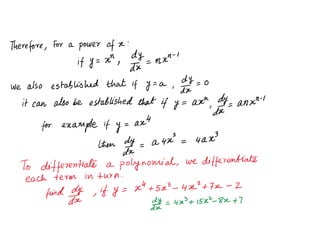 Therefore, For a power of x:
if y = xⁿ, dy/dx = nxⁿ⁻¹
We also established that if y=a, dy/dx = 0
it can also be established that if y = axⁿ, dy/dx = anxⁿ⁻¹
for example if y = ax⁴
then dy/dx = a4x³ = 4ax³
To differentiate a polynomial, we differentiate
each term in turn.
find dy/dx, if y = x⁴ + 5x³ - 4x² + 7x - 2
dy/dx = 4x³ + 15x² - 8x + 7